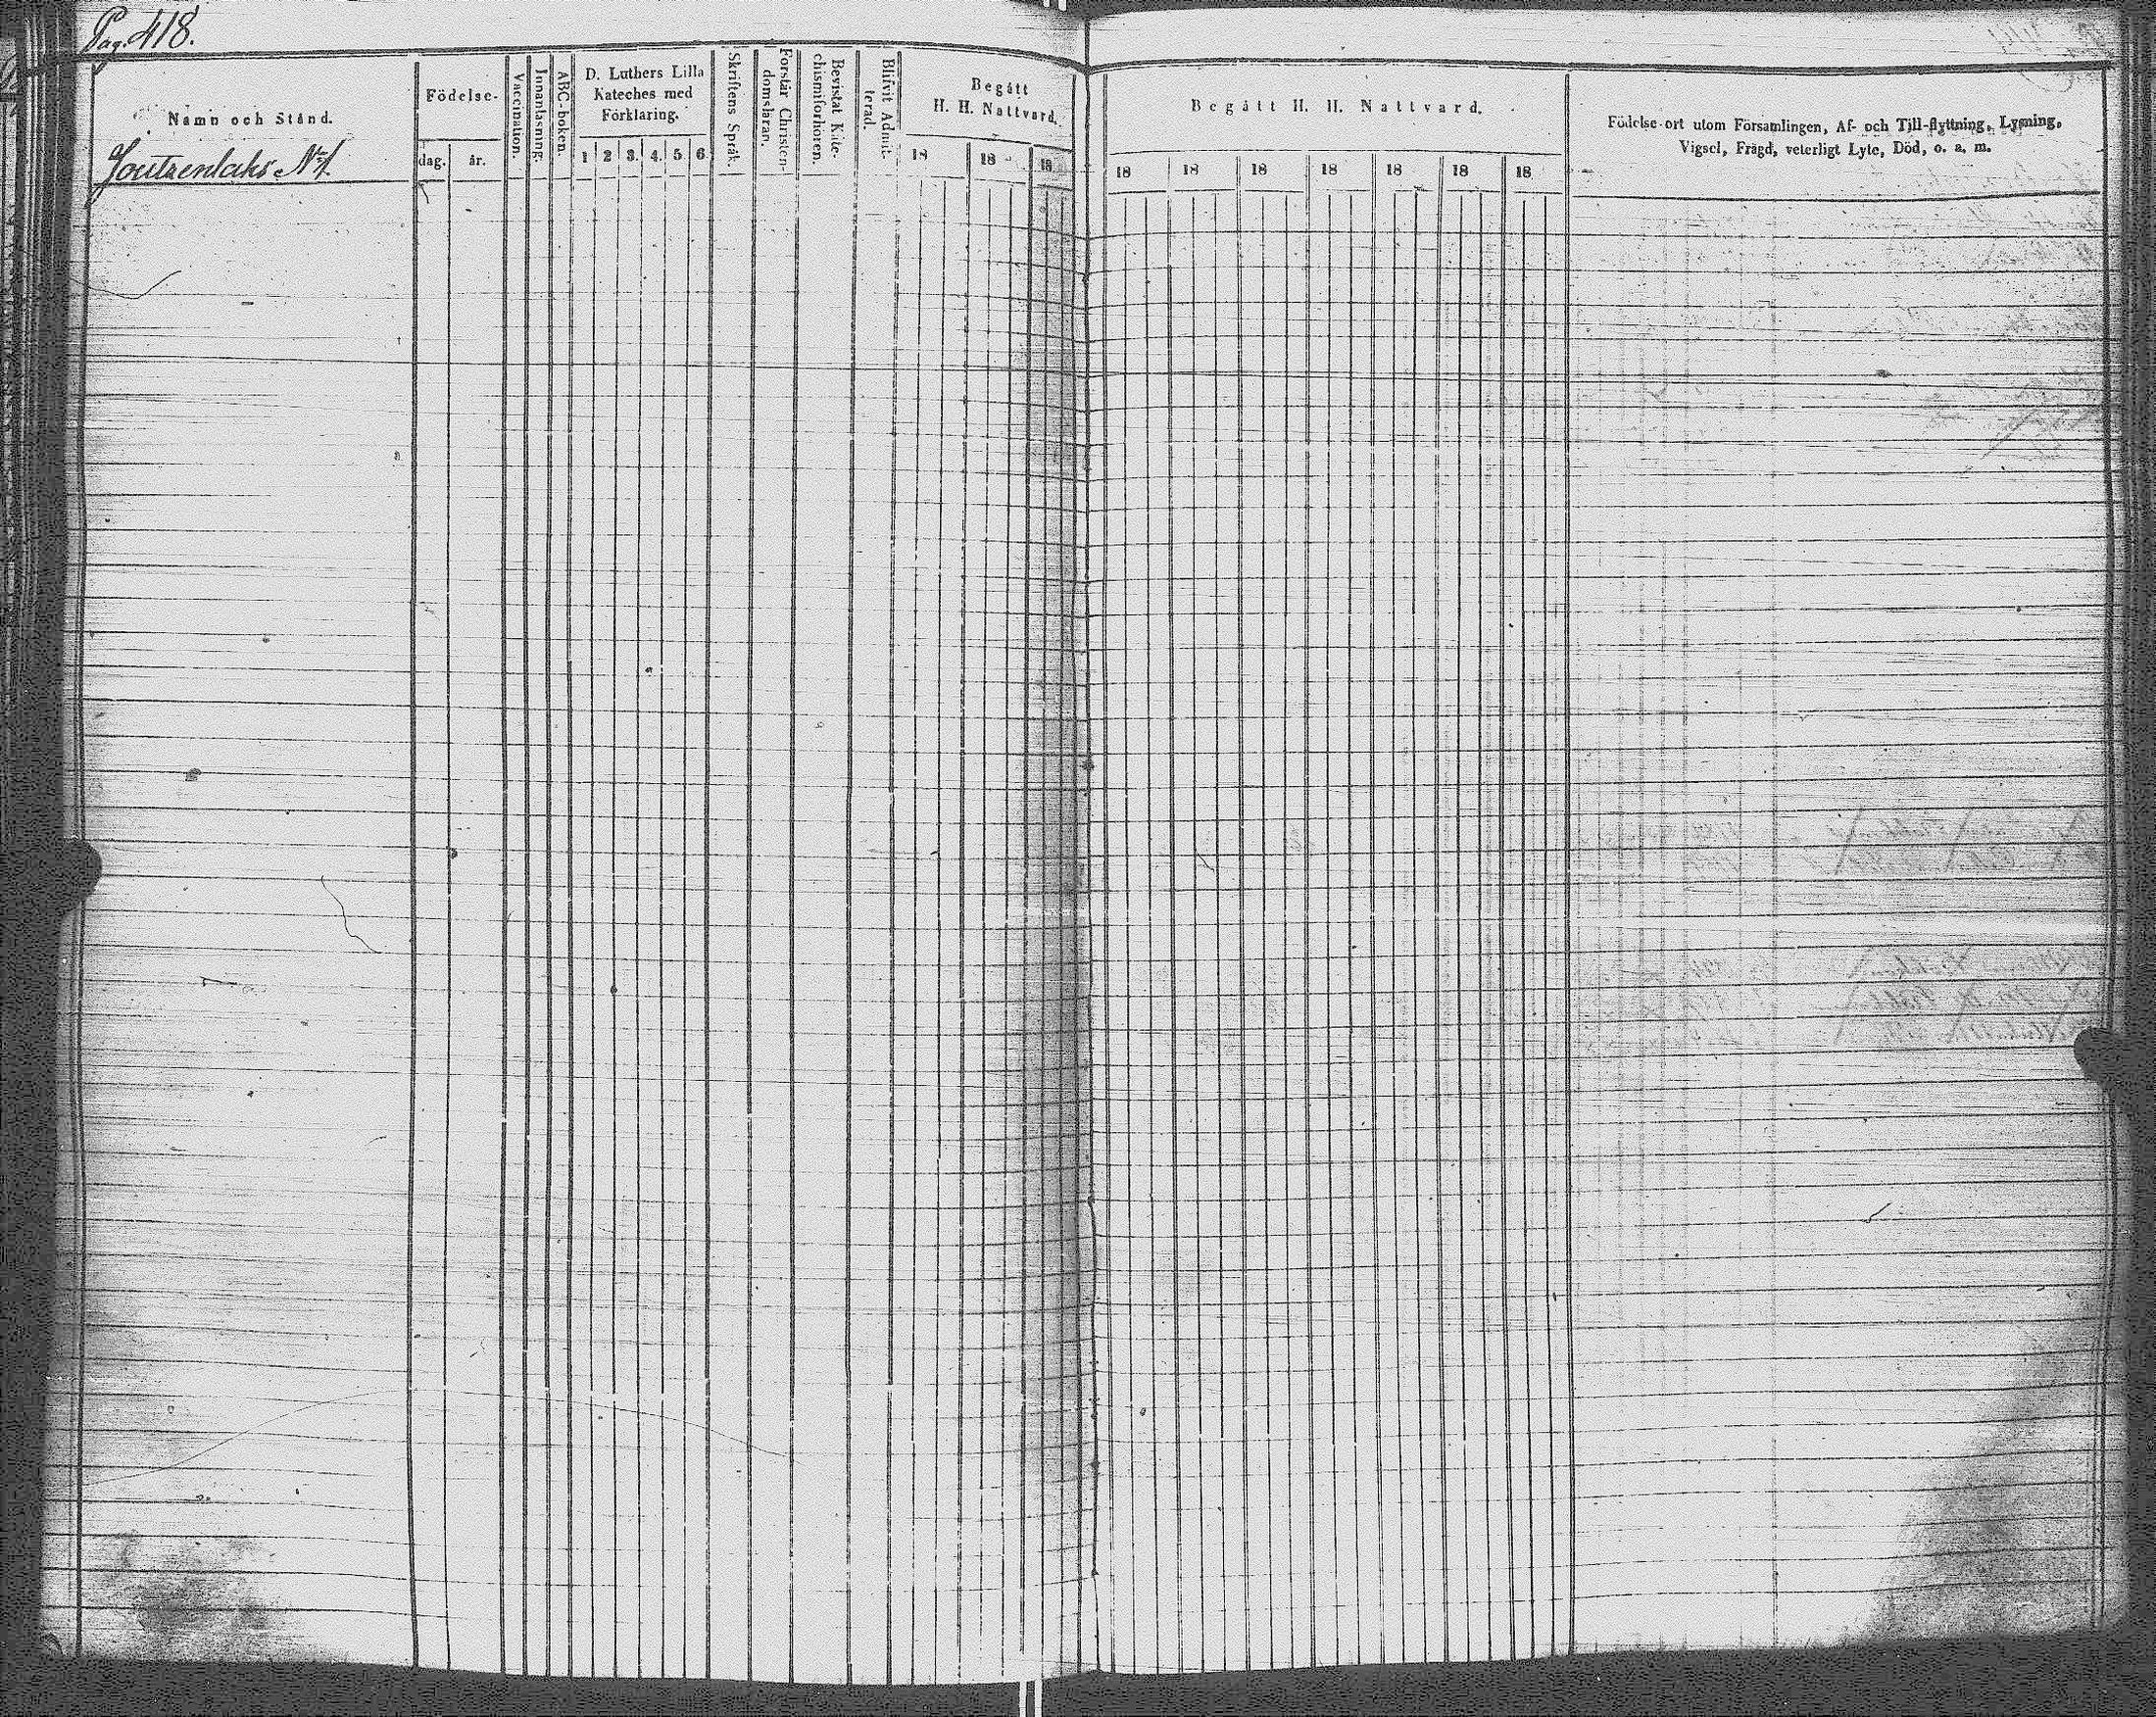 Pag. 418.
Namn och Stånd.
Joutsenlaks No 1.
Födelse-
dag. år.
Vaccination.
Innanläsning.
ABC-boken.
D. Luthers Lilla
Kateches med
Förklaring.
1 2 3. 4. 5. 6
Skriftens Språk.
Förstår Christen-
domsläran.
Bevistat Kate-
chismiförhören.
Blifvit Admit-
terad.
Begått
H. H. Nattvard.
18 18 18
Begått H. H. Nattvard.
18 18 18 18 18 18 18
Födelse-ort utom Församlingen, Af- och Till-flyttning, Lysning,
Vigsel, Frägd, veterligt Lyte, Död, o. a. m.